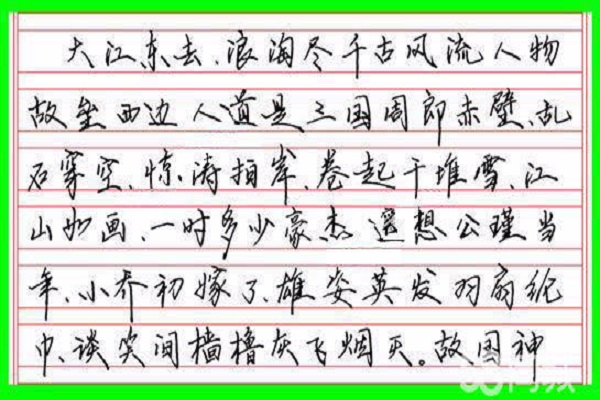 大江东去、浪淘尽千古风流人物
故垒西边人道是三国周郎赤壁、乱
石穿空、惊涛拍岸、卷起千堆雪、江
山如画、一时多少豪杰遥想公瑾当
年、小乔初嫁了、雄姿英发羽扇纶
巾、谈笑间樯橹灰飞烟灭。故国神